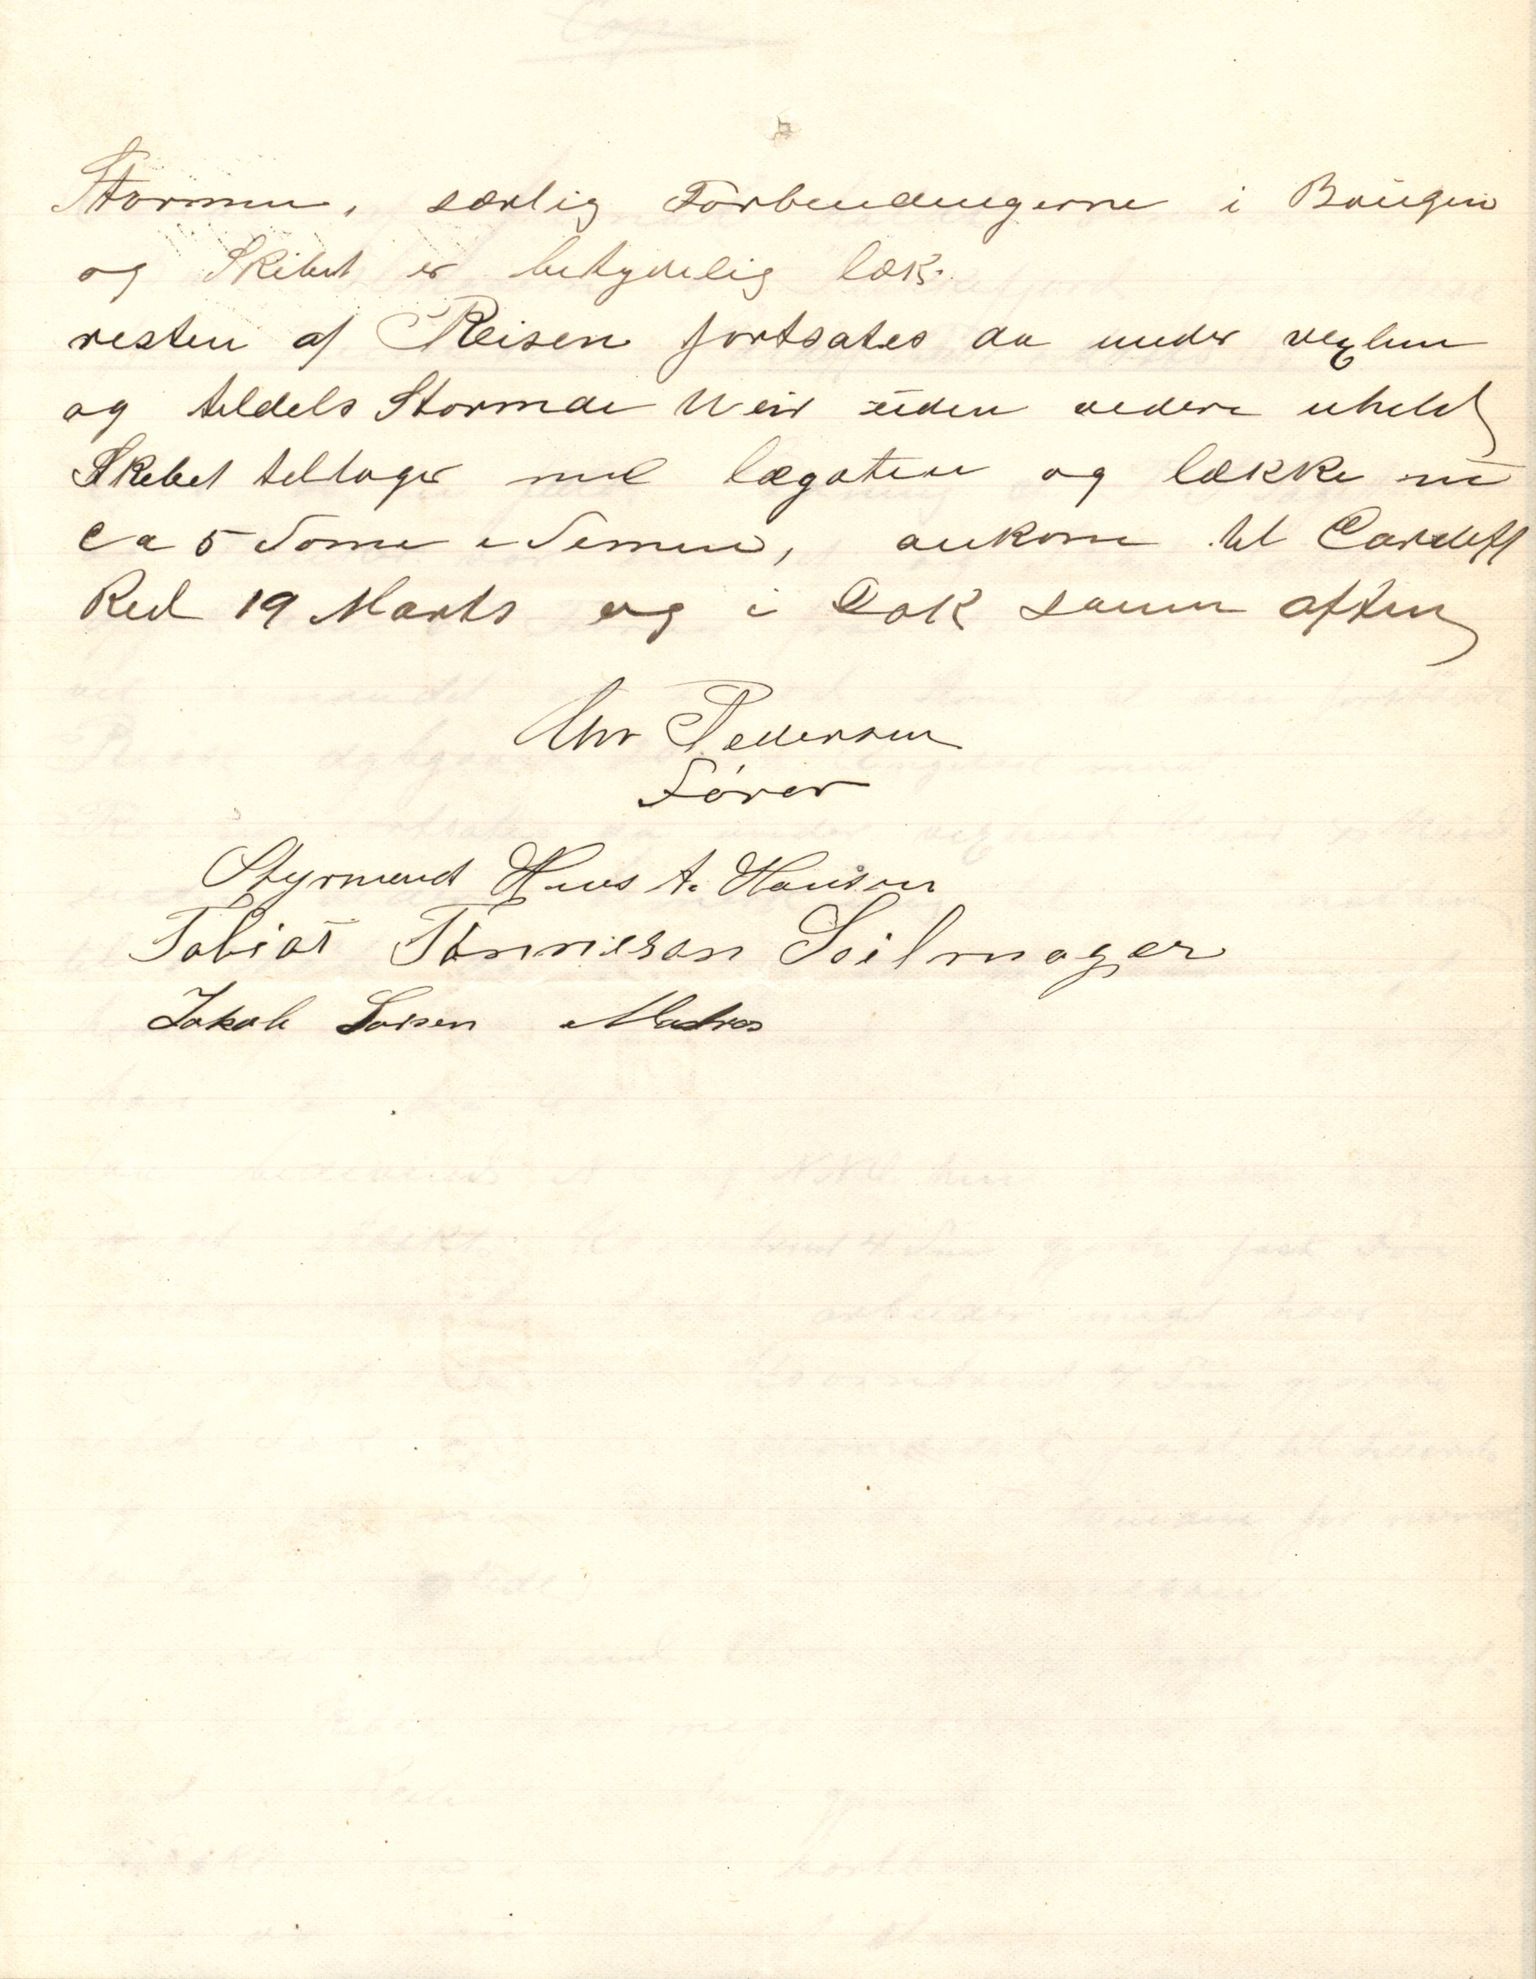 Stormen, særlig Forbendingerne i Baugen
og Skibet er betydelig læk.
resten af Reisen fortsates da under vexlen
og tildels Stormde Veir uden videre uheld
Skibet tiltager med lægaten og lække nu
Ca 5 Tomer i Timen, ankom til Cardiff
Red 19 Marts og i Dok samme aften
Chr Pedersen
Fører
Styrmand Hans A. Hansen
Tobias Tønnesen Seilmager
Jakob Larsen Matros